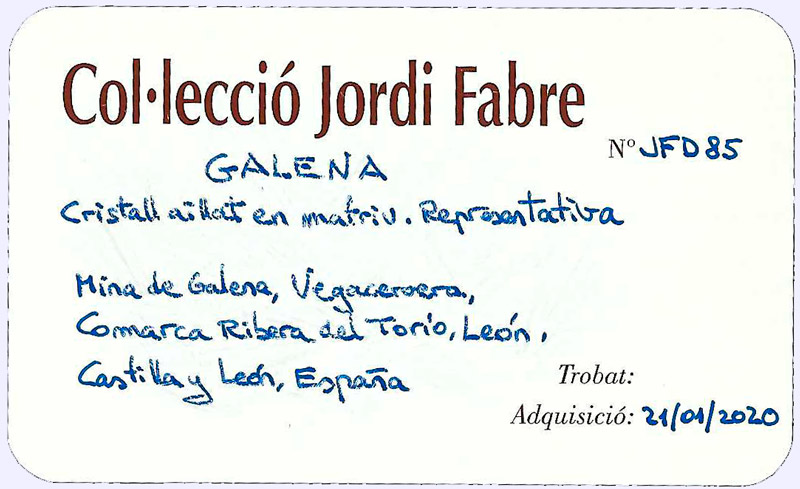 Col·lecció Jordi Fabre
Nº JFD85
GALENA
Cristall aïllat en matriu. Representativa
Mina de Galena, Vegacervera,
Comarca Ribera del Torío, León,
Castilla y León, España
Trobat:
Adquisició: 21/01/2020